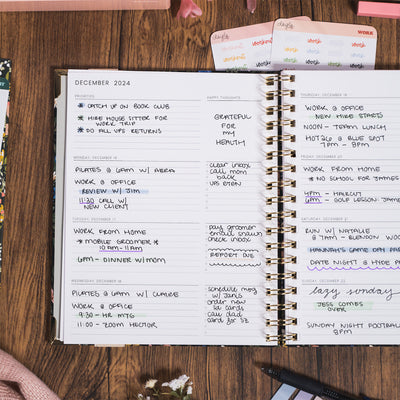 WORK
DECEMBER 2024
PRIORITIES
* CATCH UP ON BOOK CLUB
* HIRE HOUSE SITTER FOR
WORK TRIP
* DO ALL UPS RETURNS
HAPPY THOUGHTS
GRATEFUL
FOR
MY
HEALTH
MONDAY, DECEMBER 16
PILATES @ 6AM W/ ABRA
WORK @ OFFICE
REVIEW W/ JIM
11:30 CALL W/
NEW CLIENT
clear inbox
call mom
back
UPS
TUESDAY, DECEMBER 17
WORK FROM HOME
* MOBILE GROOMER *
10AM-11AM
6PM - DINNER W/MOM
pay groomer
email shawn
check inbox
REPORT DUE
WEDNESDAY, DECEMBER 18
PILATES @ 6AM W/ CLAIRE
WORK @ OFFICE
9:30 - HR MTG
11:00 - ZOOM HECTOR
schedule mtg
w/ Janis
order new
id cards
call dad
card for
THURSDAY, DECEMBER 19
WORK @ OFFICE
NEW HIRE STARTS
NOON - TEAM LUNCH
@ BLUE SPOT
7PM - 9PM
FRIDAY, DECEMBER 20
WORK FROM HOME
* NO SCHOOL FOR JAMES
4PM - HAIRCUT
6PM - GOLF LESSON: JAMES
SATURDAY, DECEMBER 21
RUN W/ NATALIE
@ 7AM - BLENDON WOODS
HANNAH'S GAME DAY
DATE NIGHT @ HYDE
SUNDAY, DECEMBER 22
lazy sunday
JESS COMES
OVER
SUNDAY NIGHT FOOTBALL
@ 8PM